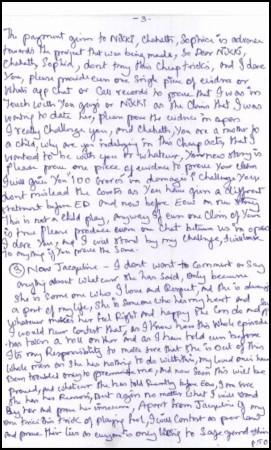 - 3 -
The payment given to Nikki, Chahatt, Sophia is advance
towards the project that was being made, so Dear Nikki,
Chahatt, Sophia, don't try this cheap tricks, and I dare
You, please provide even one single piece of evidence or
Whats app Chat or Call records to prove that I was in
Touch with You guys or Nikki as she claims that I was
wanting to date her, please prove the evidence in open
I really challenge you, and chahatt, You are a mother to
a child, why are you indulging in this Cheap acts, that I
wanted to be with you or whatever, Your new story is
Please prove one piece of evidence to prove your claim
I will give You 100 Crores in damages I challenge You
don't mislead the courts as You have given a different
statement before ED and now before EOW on new story
This is not a child play, anyway if even one claim of Yours
is true please produce even one chat between us in open
I dare You, and I will stand by my challenge,
to anything if You prove the same.
③ Now Jacqueline - I don't want to Comment or Say
any thing about whatever she has said, Only because
She is someone who I love and Respect, and she is always
a part of my life, She is someone who has my heart and
Whatever makes her feel Right and happy She can do and
I would never Contest that, as I know how this whole episode
has taken a toll on her and as I have told even before
Its my Responsibility to make sure that she is out of this
Whole mess as She has nothing to do with this, my loved ones have
Been troubled only to me, and now Soon this will be
Proved, and whatever She has told Recently before EOW, I am sure
She has her Reasons, But again no matter what I will stand
By her and prove her innocence, Apart from Jacqueline if any
one tries this trick of playing fool, I will Contest as per law
and prove this lies as everyone is only trying to Save
P.T.O